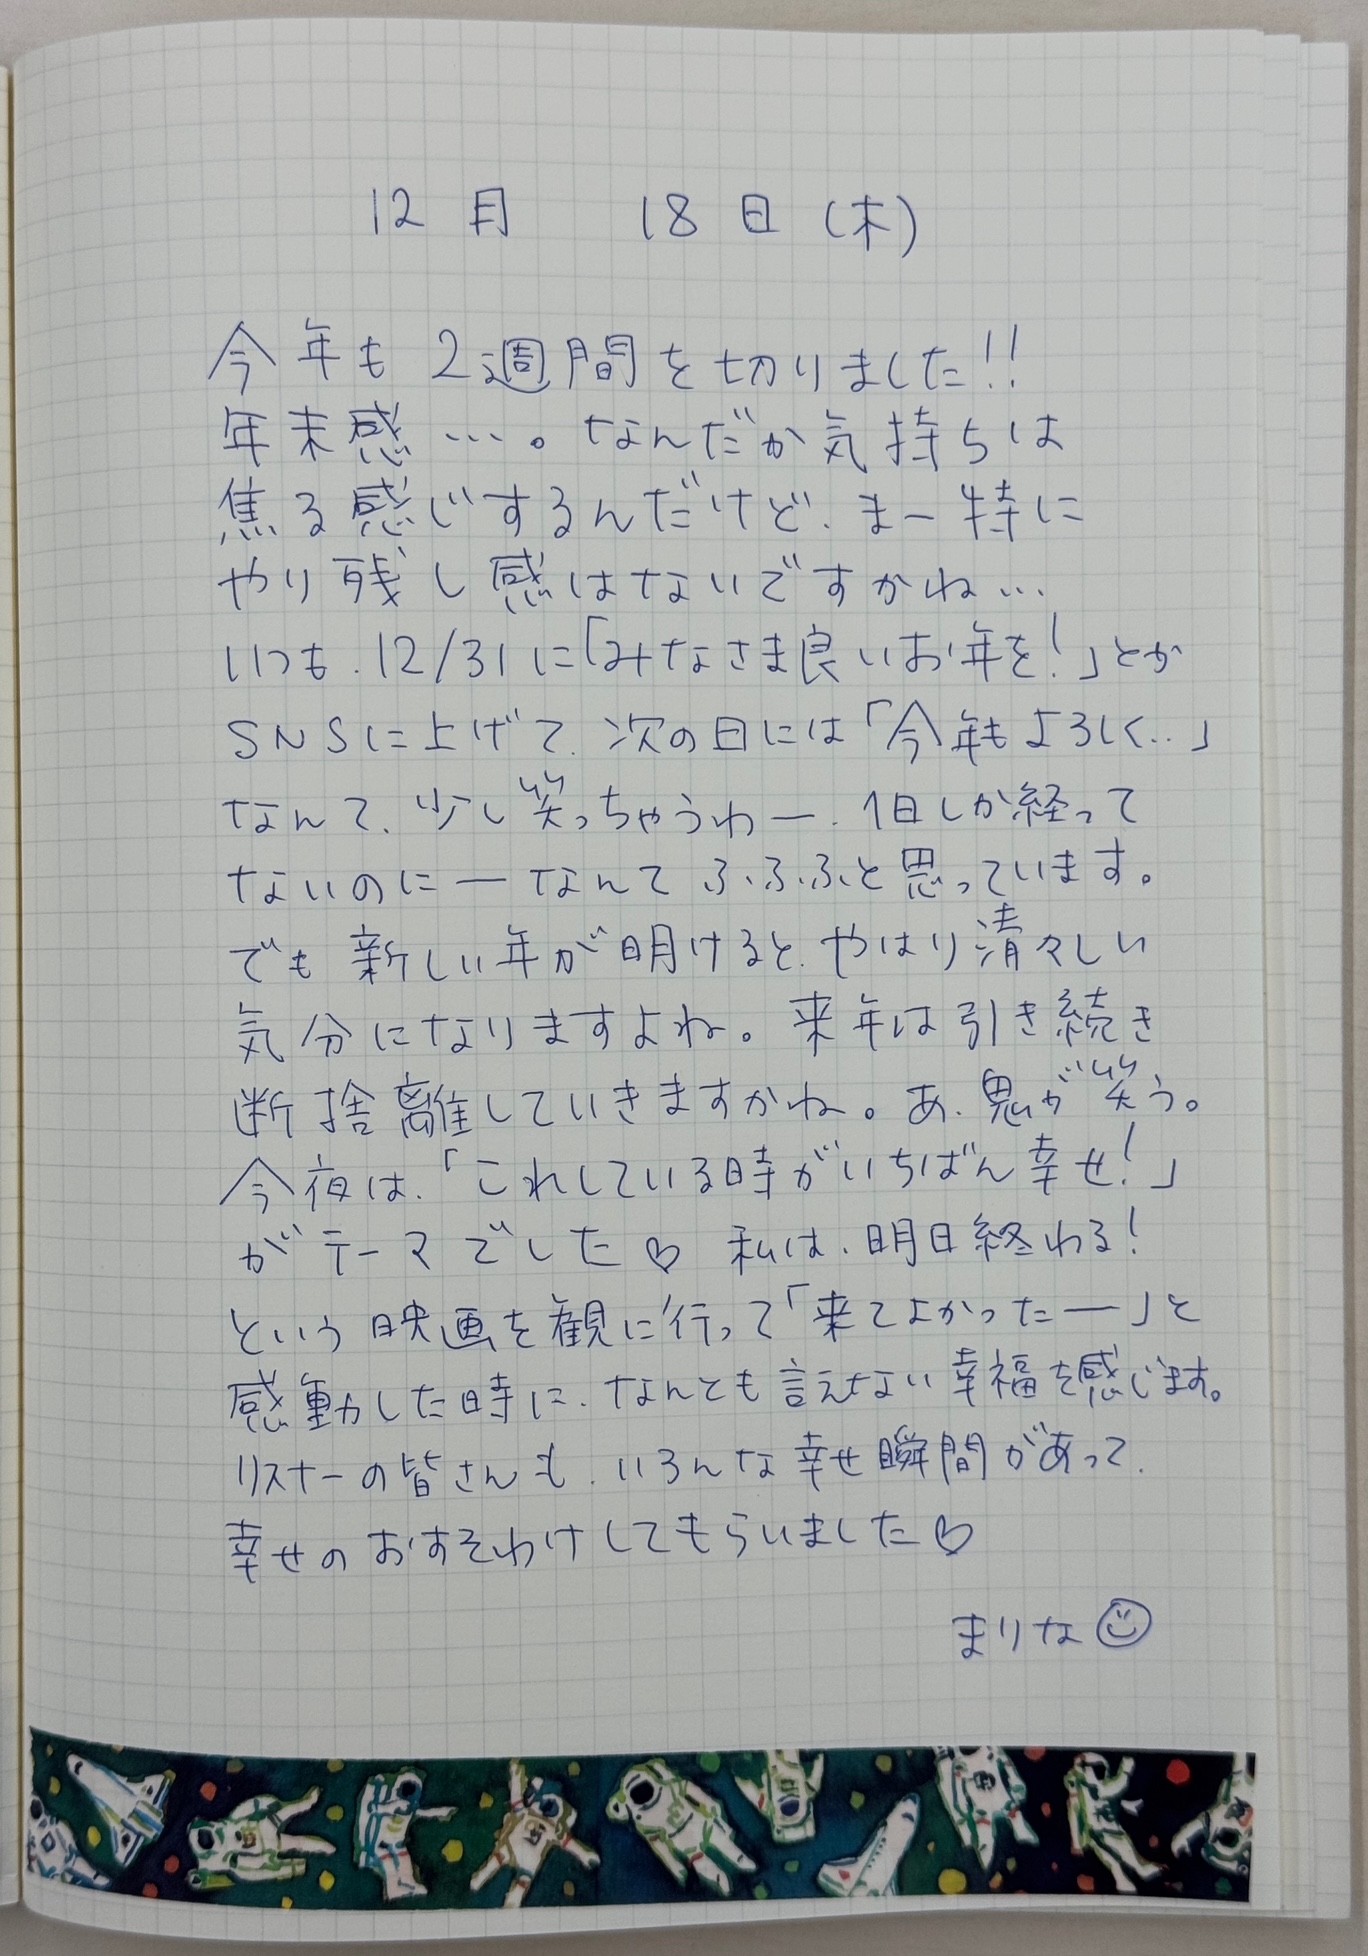 12月 18日(木)
今年も2週間を切りました!!
年末感…。なんだか気持ちは
焦る感じするんだけど、まー特に
やり残し感はないですかね…
いつも、12/31に「みなさま良いお年を!」とか
SNSに上げて、次の日には「今年もよろしく..」
なんて、少し笑っちゃうわー、1日しか経って
ないのにーなんてふふふと思っています。
でも新しい年が明けると、やはり清々しい
気分になりますよね。来年は引き続き
断捨離していきますかね。あ、鬼が笑う。
今夜は、「これしている時がいちばん幸せ!」
がテーマでした♡ 私は、明日終わる!
という映画を観に行って「来てよかったー」と
感動した時に、なんとも言えない幸福を感じます。
リスナーの皆さんも、いろんな幸せ瞬間があって、
幸せのおすそわけしてもらいました♡
まりな☺